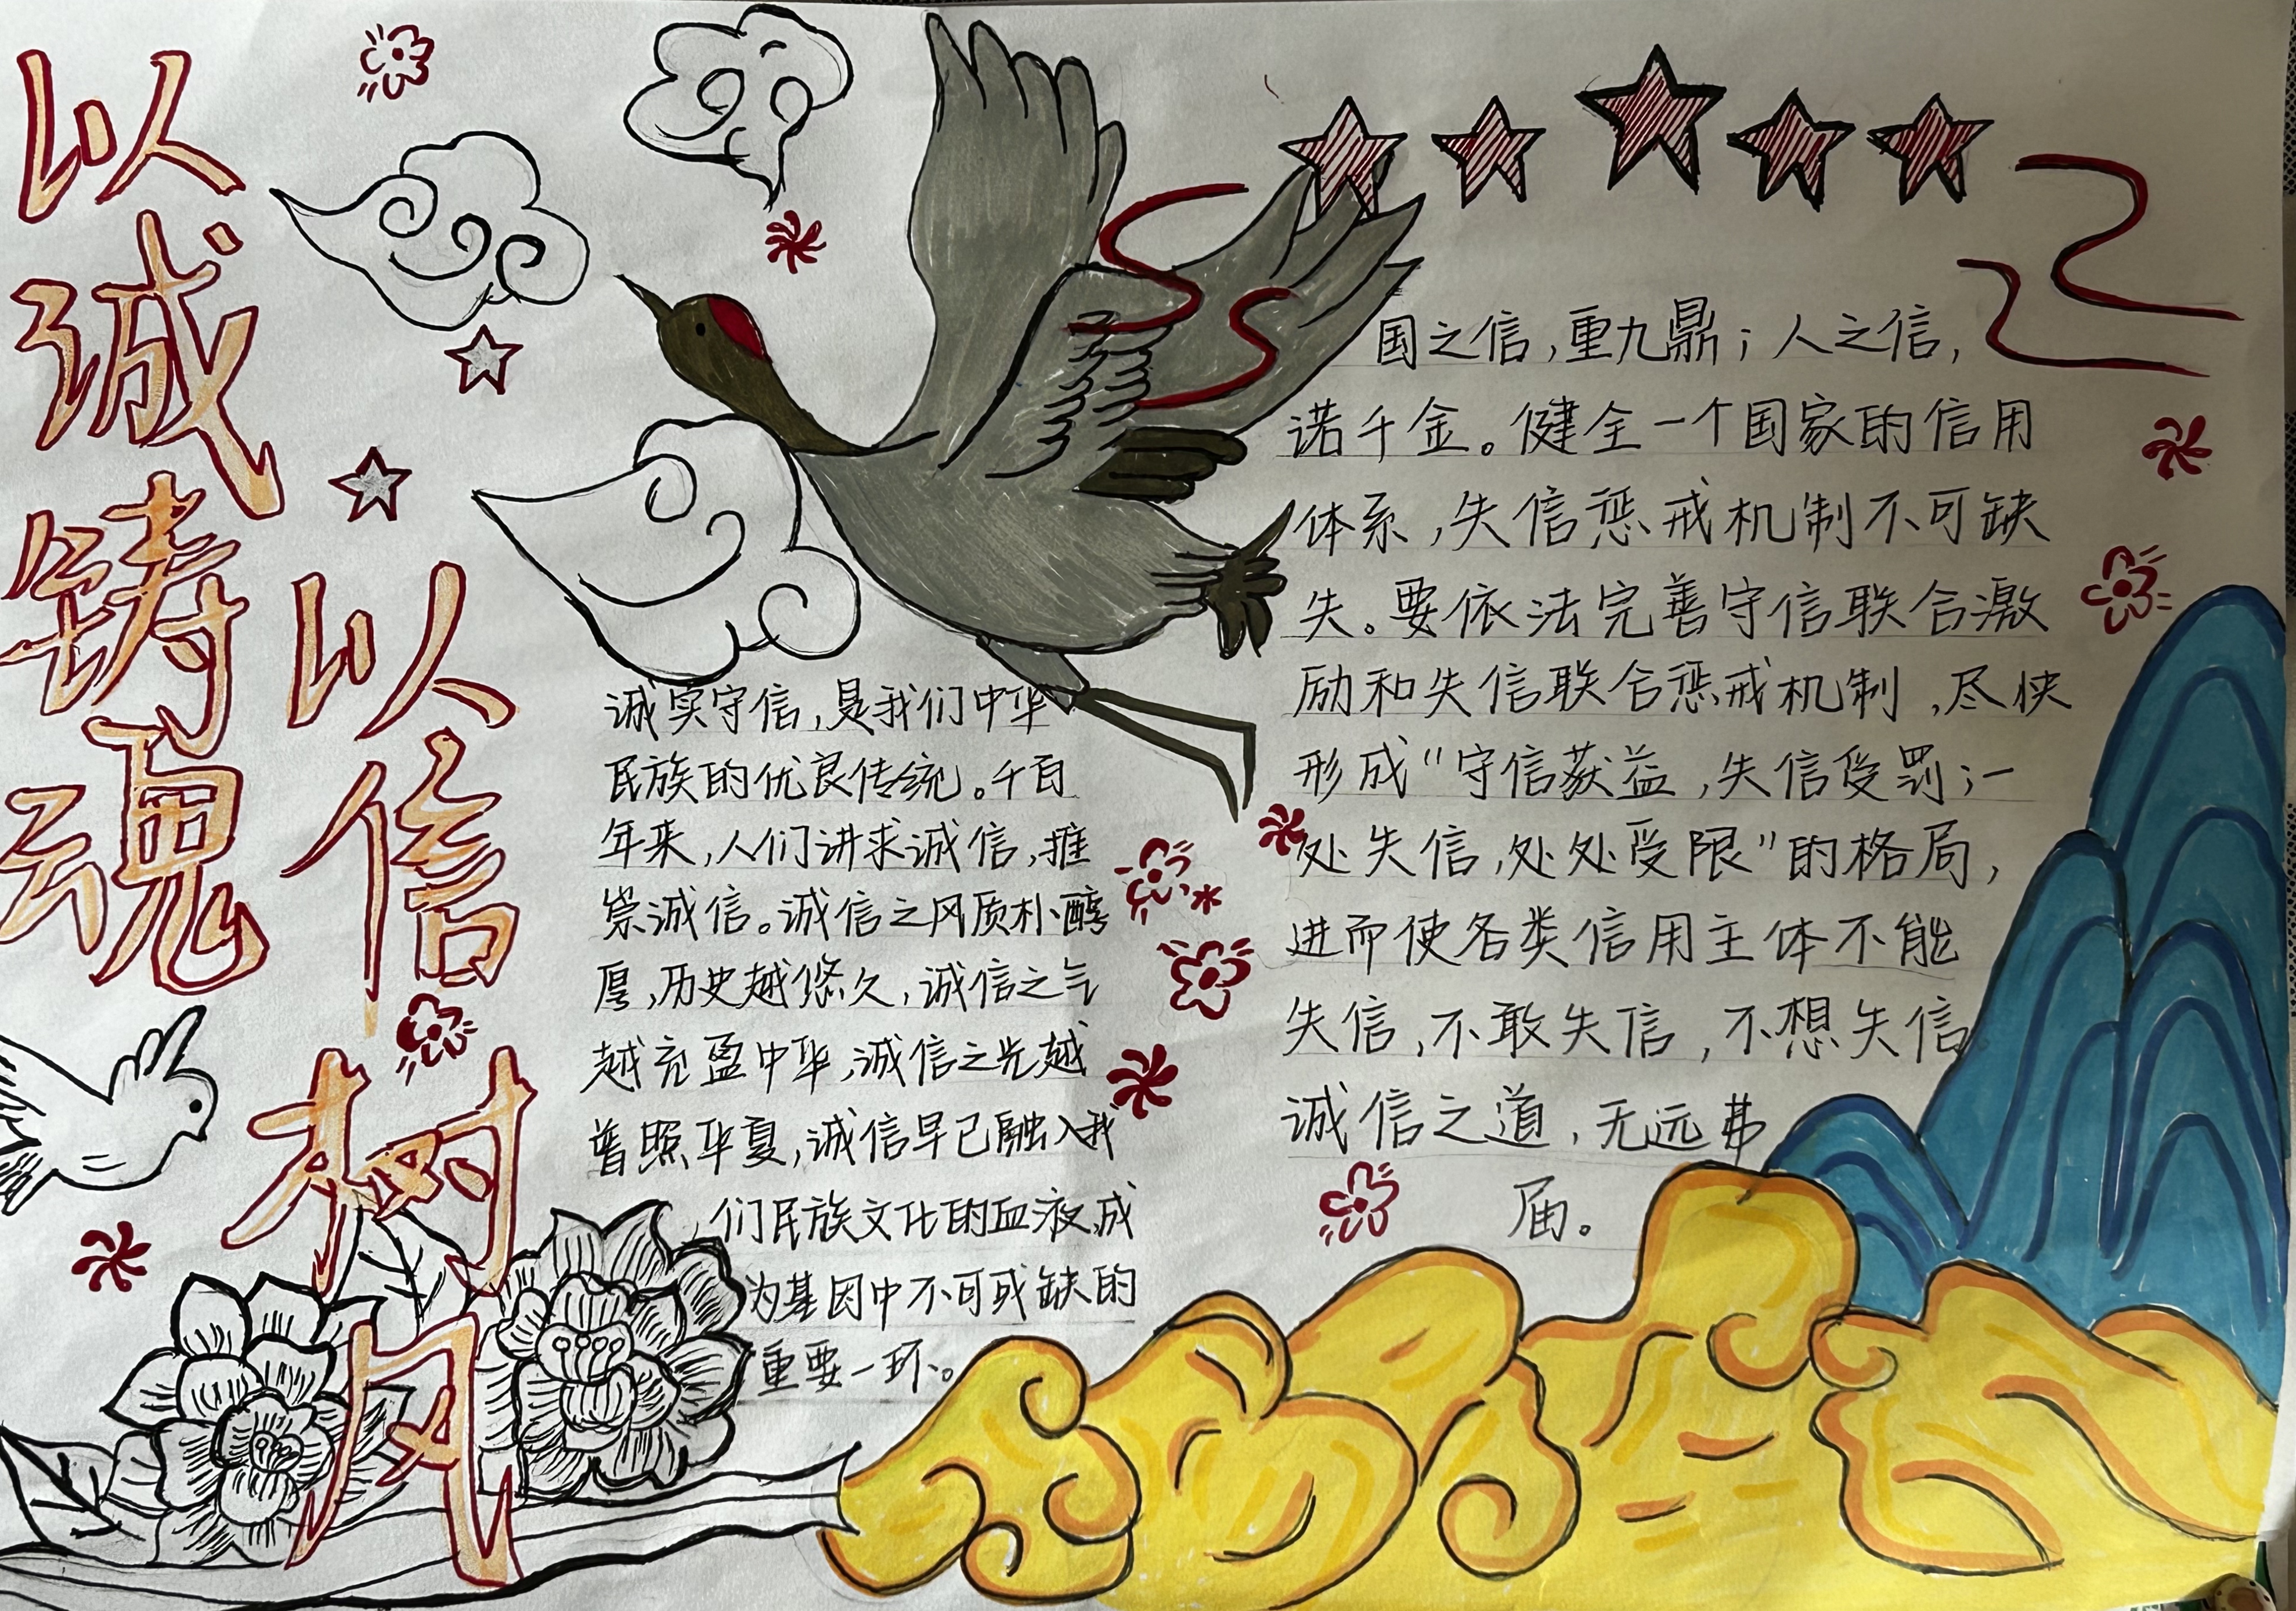 以诚铸魂
以信树风
诚实守信，是我们中华
民族的优良传统。千百
年来，人们讲求诚信，推
崇诚信。诚信之风质朴醇
厚，历史越悠久，诚信之气
越充盈中华，诚信之光越
普照华夏，诚信早已融入我
们民族文化的血液，成
为基因中不可或缺的
重要一环。
国之信，重九鼎；人之信，
诺千金。健全一个国家的信用
体系，失信惩戒机制不可缺
失。要依法完善守信联合激
励和失信联合惩戒机制，尽快
形成“守信获益，失信受罚；一
处失信，处处受限”的格局，
进而使各类信用主体不能
失信，不敢失信，不想失信
诚信之道，无远弗
届。